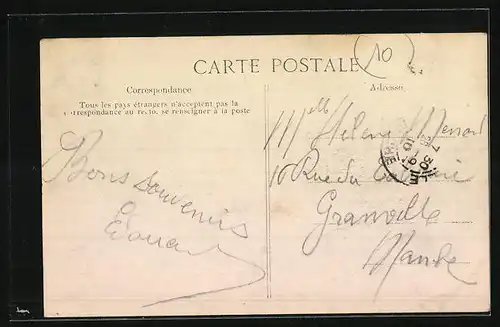 CARTE POSTALE
10
Correspondance
Tous les pays étrangers n'acceptent pas la
correspondance au recto, se renseigner à la poste
Adresse
Bons souvenirs
Edouard
Mlle Hélène
10 Rue du
Granville
Manche
7 30